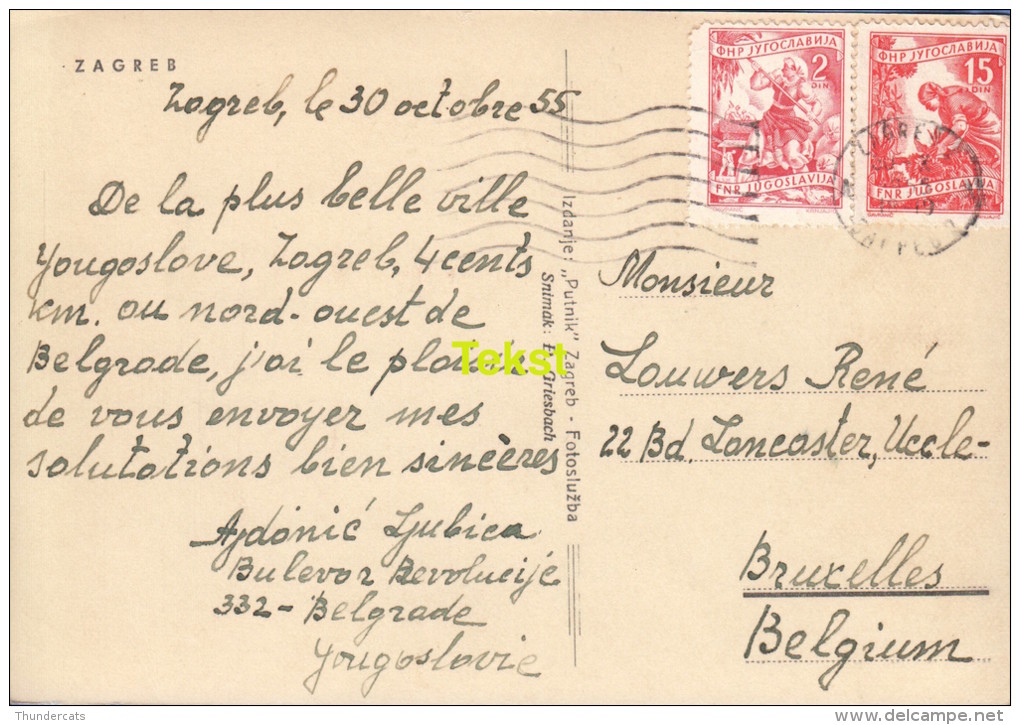 ZAGREB
Zagreb, le 30 octobre 55
De la plus belle ville
Yougoslave, Zagreb, 4cents
km. au nord-ouest de
Belgrade, j'ai le plaisir
de vous envoyer mes
salutations bien sincères
Ajdonić Ljubica
Bulevar Revolucije
332-Belgrade
Yougoslavie
Izdanje: „Putnik" Zagreb - Fotoslužba
Snimak: Griesbach
Tekst
ФНР ЈУГОСЛАВИЈА
2
DIN
FNR JUGOSLAVIJA
ФНР ЈУГОСЛАВИЈА
15
DIN
FNR JUGOSLAVIJA
Monsieur
Louwers René
22 Bd. Lancaster, Uccle-
Bruxelles
Belgium
Thundercats
delcampe.net